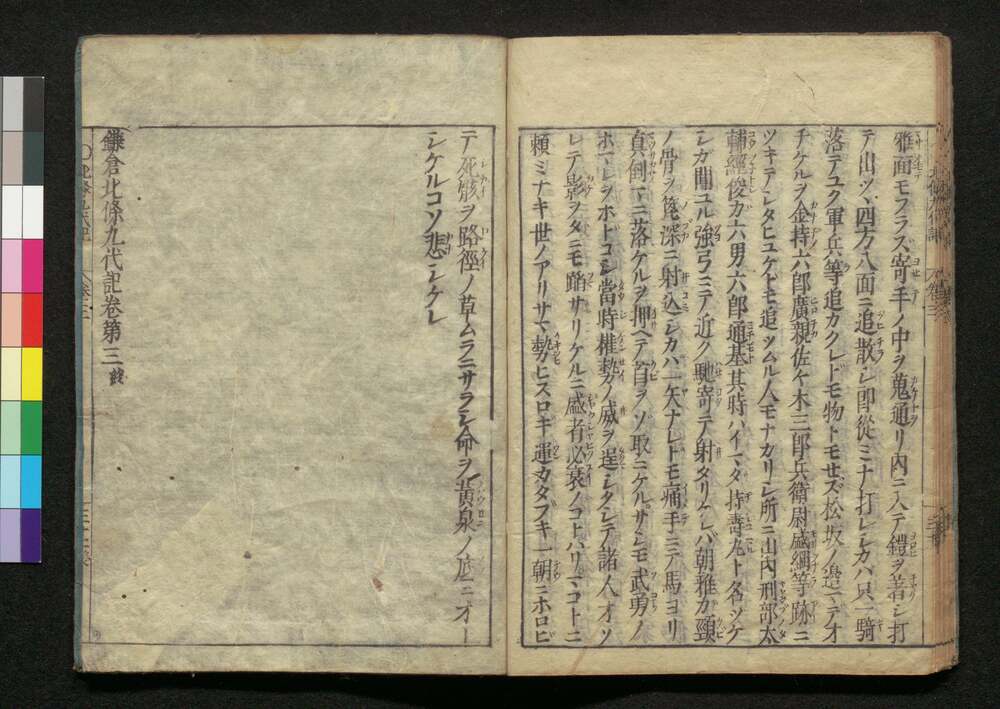 雅面モフラズ寄手ノ中ヲ蒐通リ内ニ入テ鎧ヲ著シ打
テ出ツヽ四方八面ニ追散シ郎從ミナ打レシカハ只一騎
落テユク軍兵等追カクレドモ物トモせズ松坂ノ邊マデオ
チケルヲ金持六郎廣親佐々木三郎兵衛尉盛綱等跡ニ
ツキテシタヒユケドモ追ツムル人モナカリシ所ニ山内刑部太
輔經俊カ六男六郎通基其時ハイマダ持壽丸ト名ツケ
シカ聞ユル強弓ニテ近ク馳寄テ射タリケレバ朝雅カ頸
ノ骨ヲ篦深ニ射込シカハ一矢ナレトモ痛手ニテ馬ヨリ
真倒マニ落ケルヲ押ヘテ首ヲソ取ニケルサシモ武勇ノ
ホマレヲホドコシ當時權勢ノ威ヲ逞シクシテ諸人オソ
レテ影ヲタニモ蹈サリケルニ盛者必衰ノコトハリマコトニ
頼ミナキ世ノアリサマ勢ヒスロキ運カタブキ一朝ニホロビ
テ死骸ヲ路徑ノ草ムラニサラシ命ヲ黄泉ノ底ニオト
シケルコソ悲シケレ
鎌倉北條九代記卷第三終